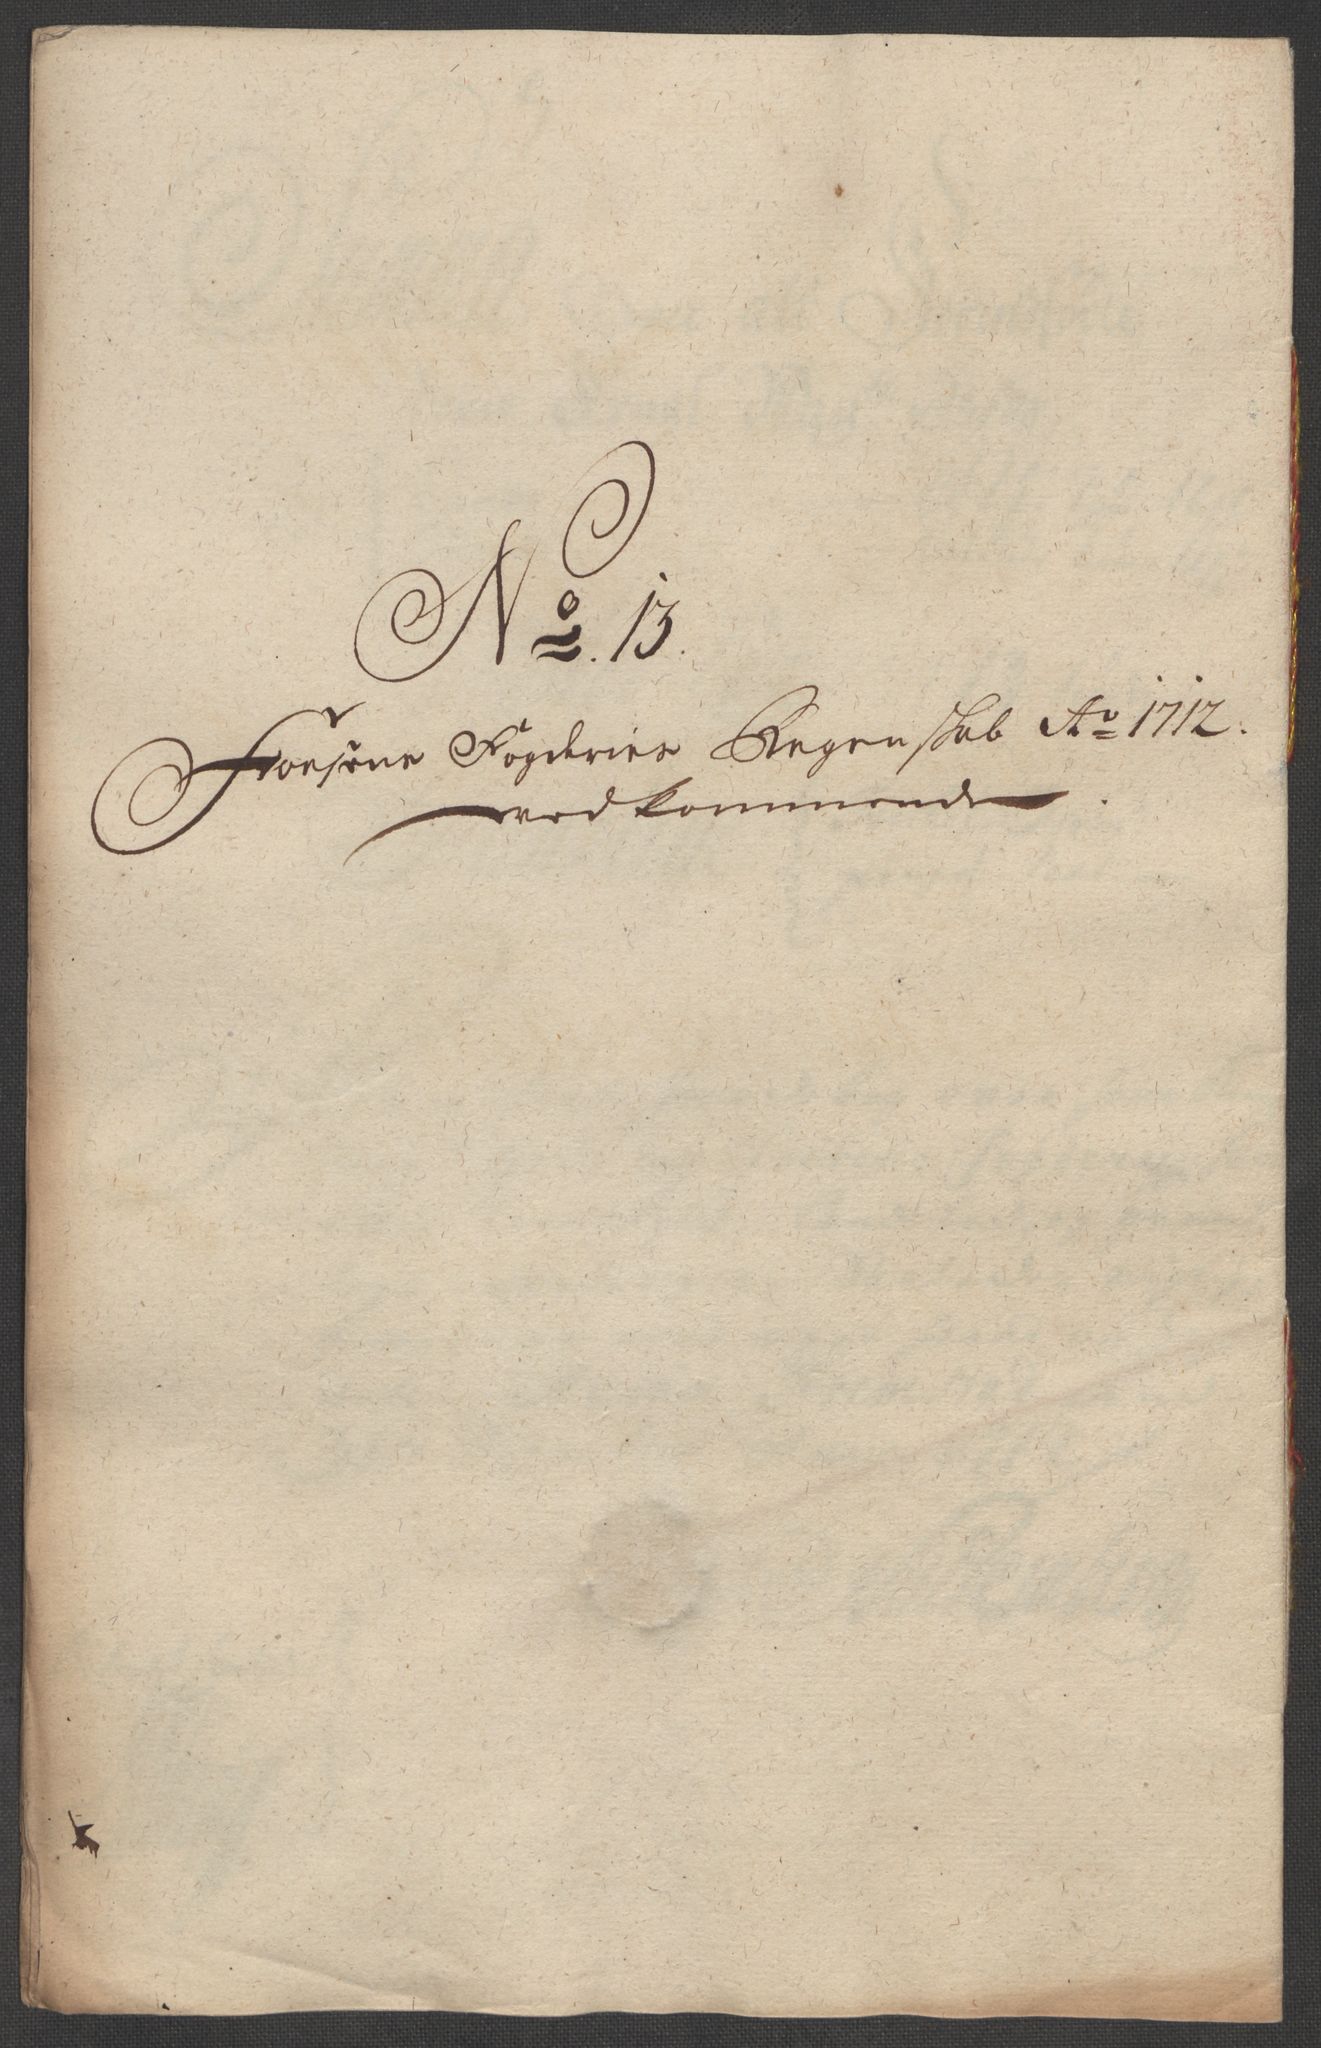 No. 13.
Foesene Fogderies Regenskab Ao 1712.
vedkommende.